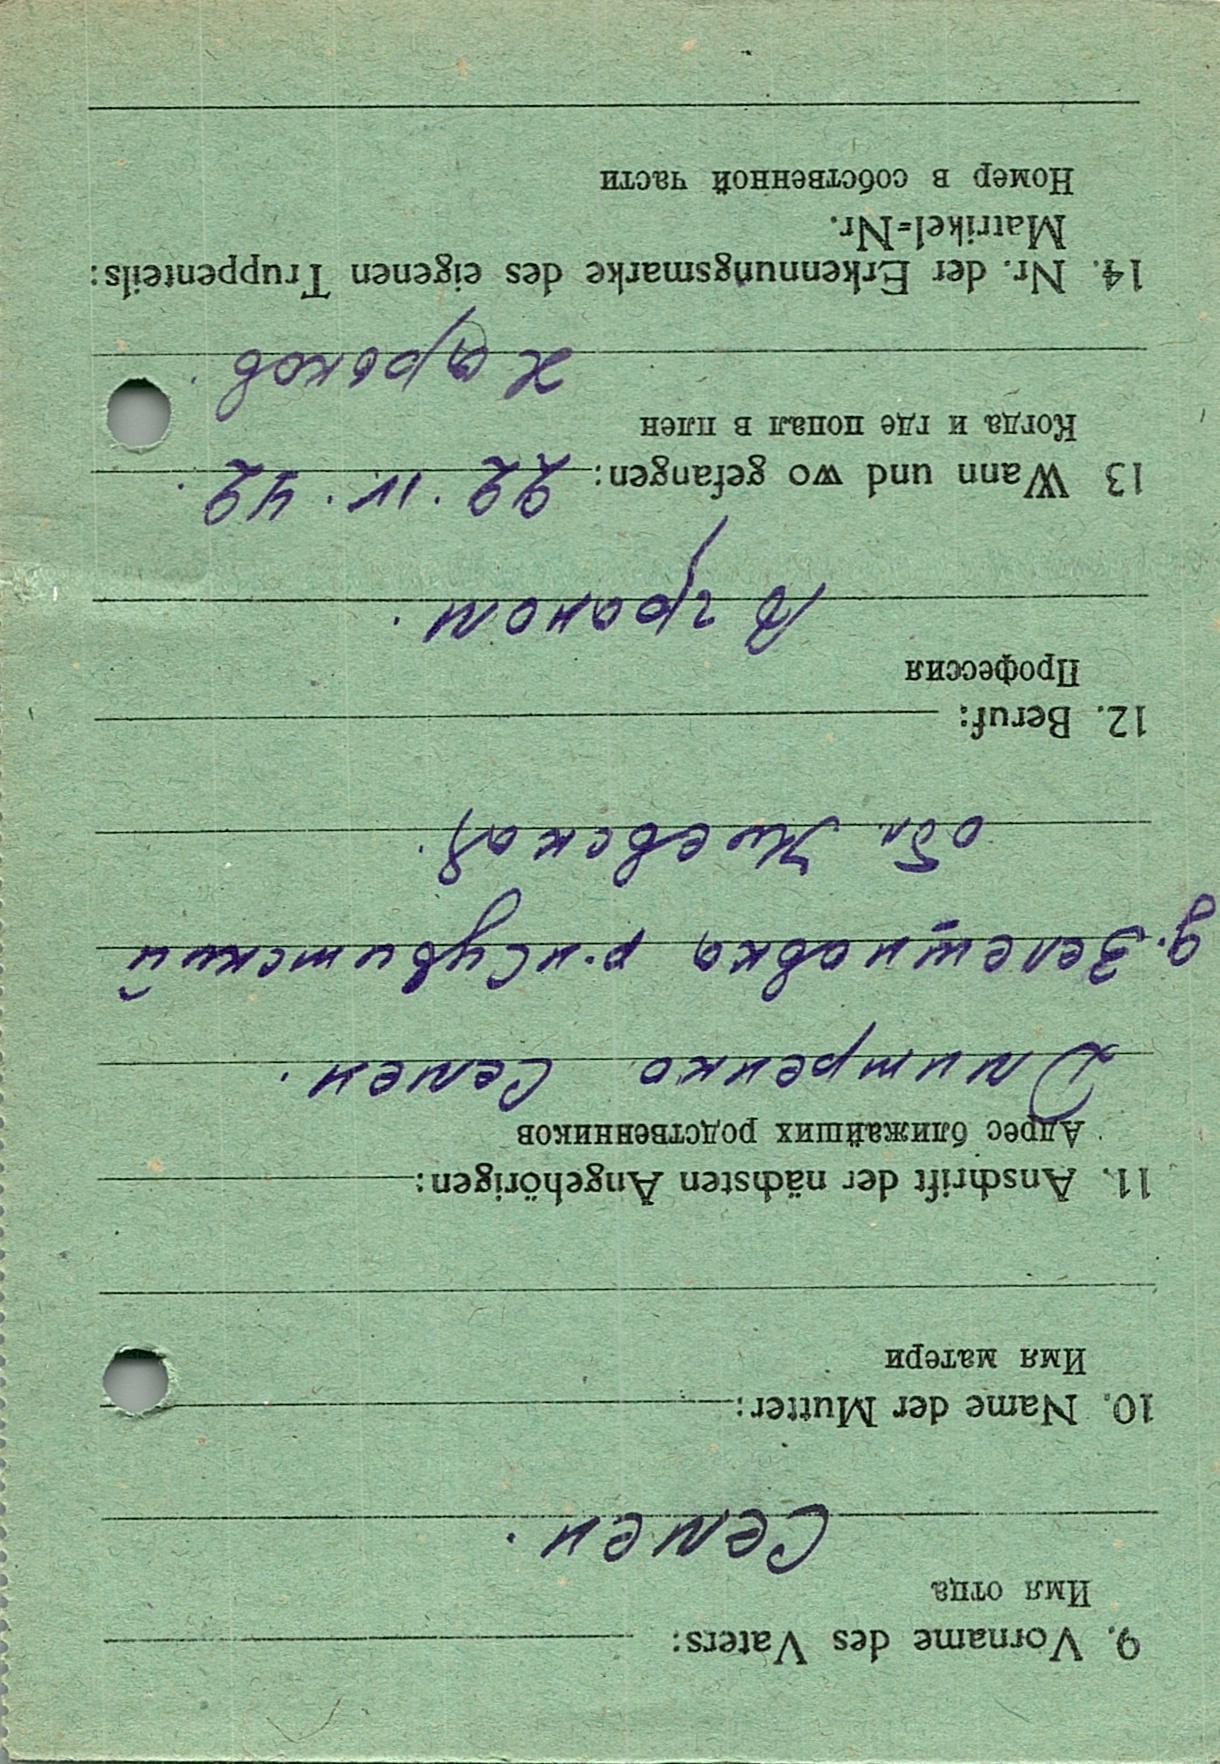 9. Vorname des Vaters:
Имя отца
Семен.
10. Name der Mutter:
Имя матери
11. Anschrift der nächsten Angehörigen:
Адрес ближайших родственников
Дмитренко Семен.
д. Зелещиновка р-н
обл. Киевская.
12. Beruf:
Профессия
Агроном.
13 Wann und wo gefangen: 22. IV. 42.
Когда и где попал в плен
Харьков.
14. Nr. der Erkennungsmarke des eigenen Truppenteils:
Matrikel=Nr.
Номер в собственной части